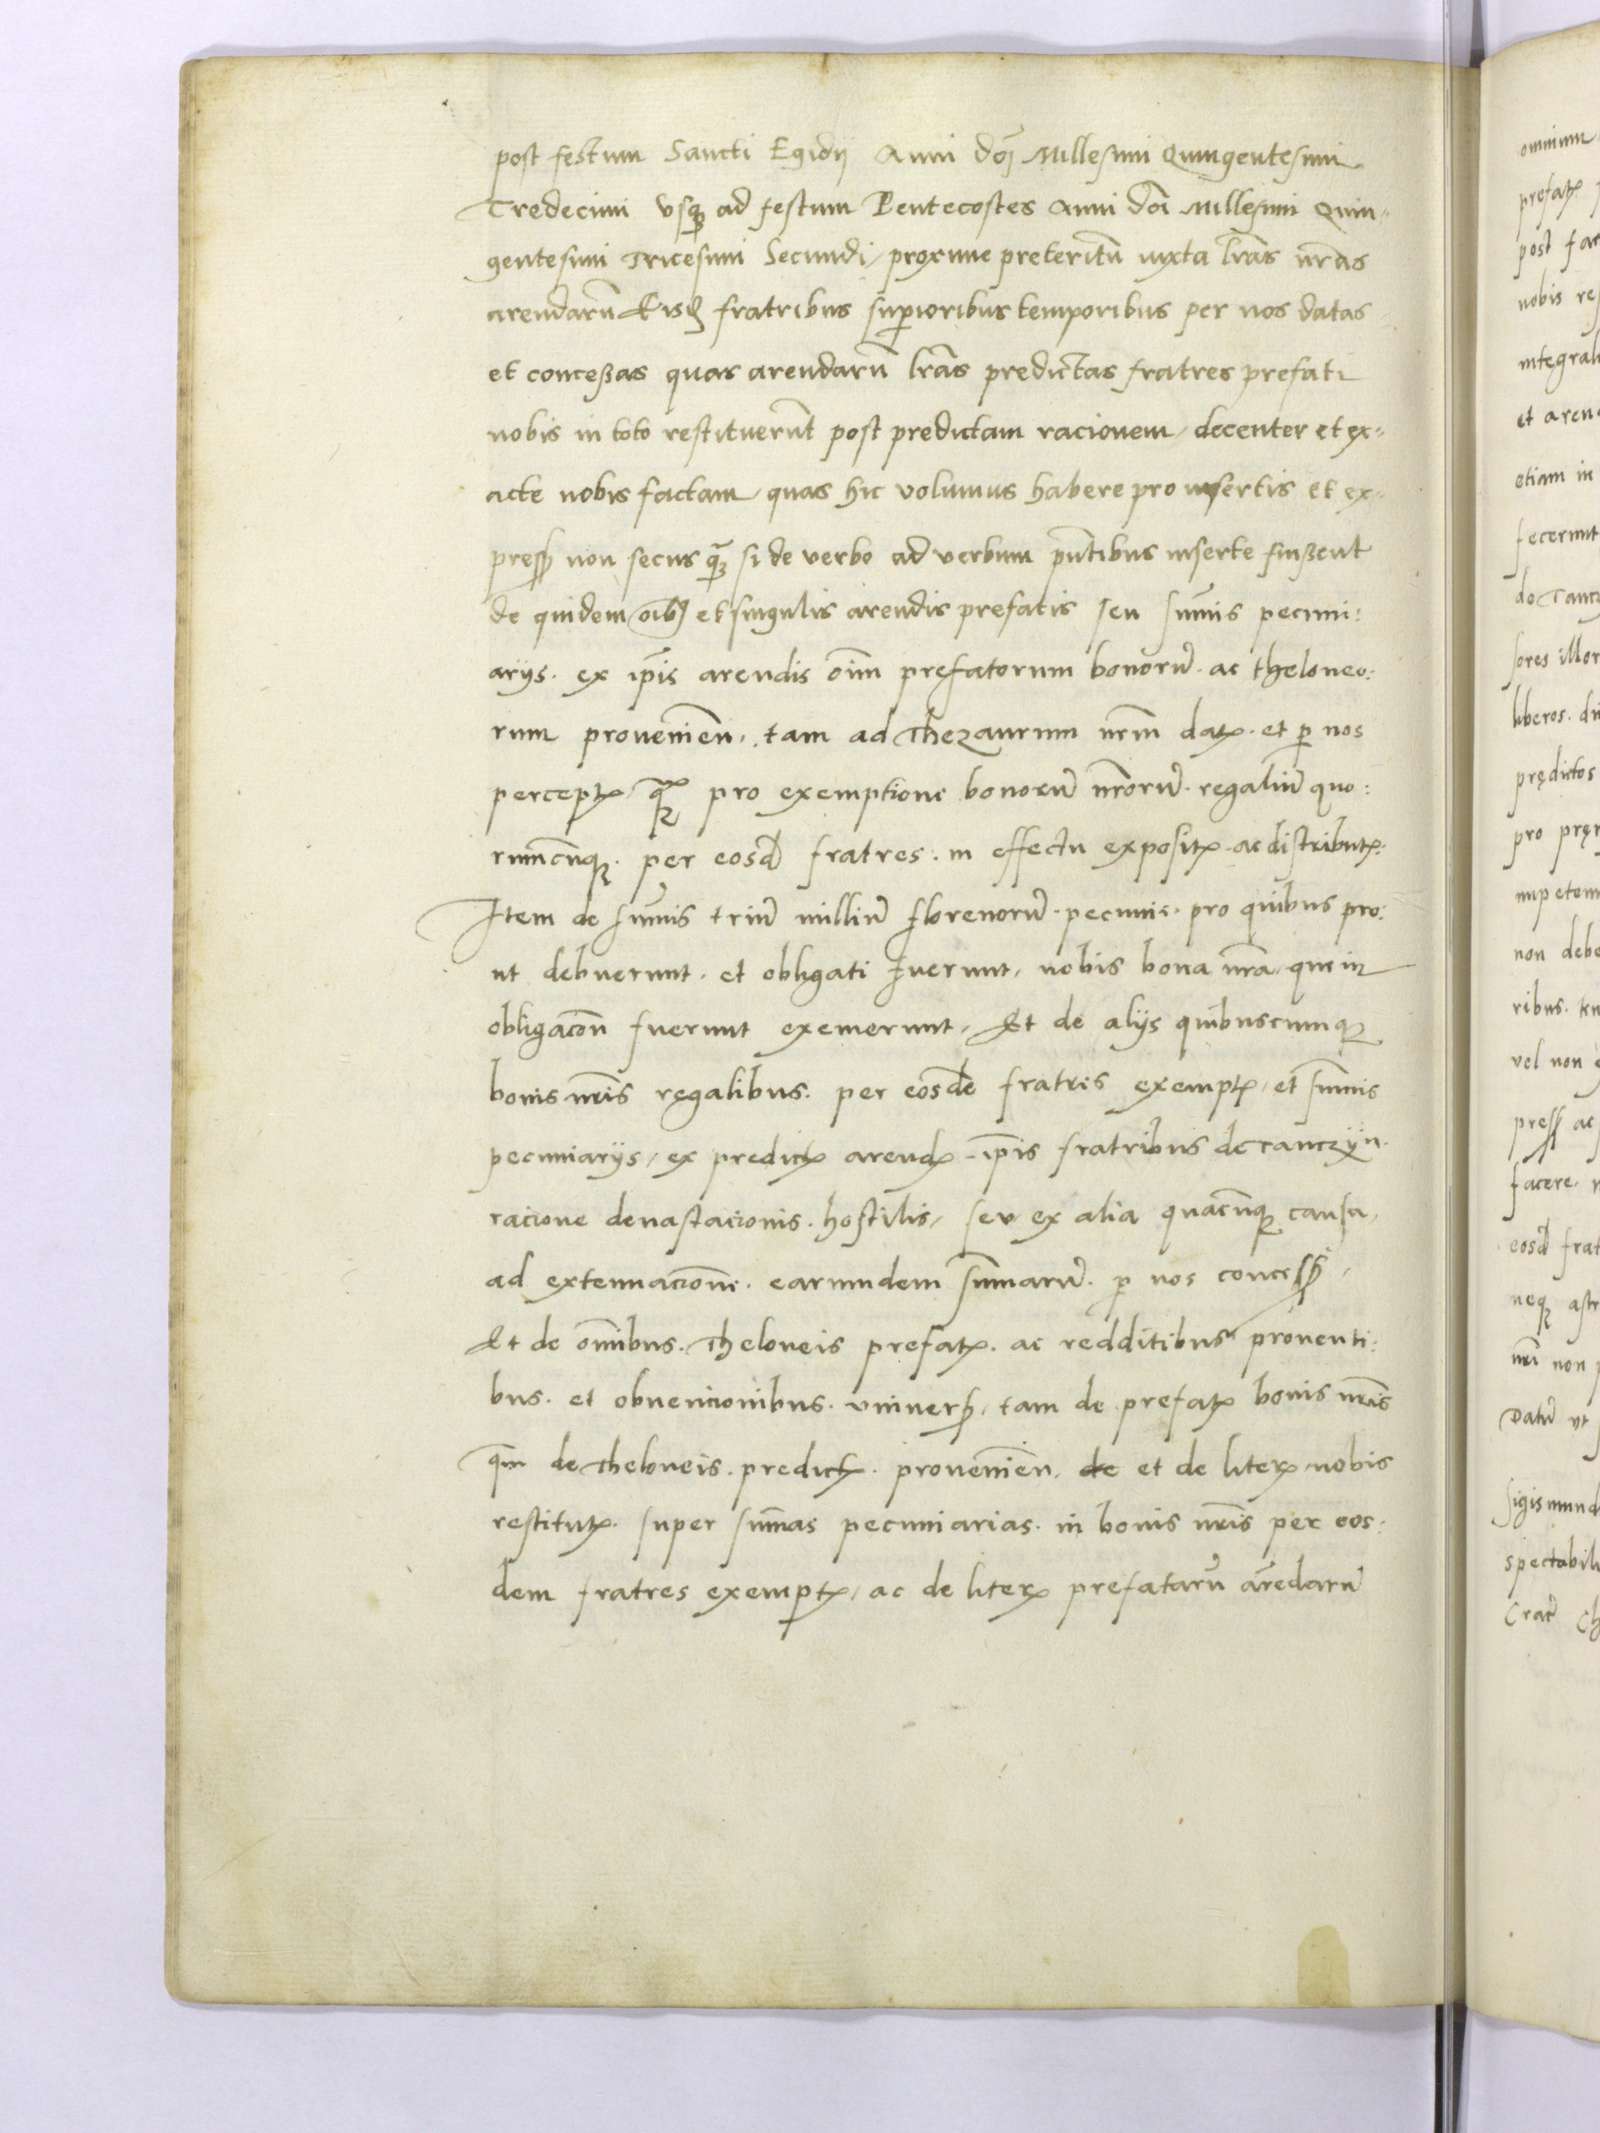 post festum Sancti Egidÿ Anni dōi Millesimi Quingentesimi
Tredecimi vsqꝫ ad festum Pentecostes Anni dōi Millesimi Quin-
gentesimi Tricesimi Secundi, proxime preteritū iuxta l̄ras nr̄as
arendarū Eisđ fratribus suꝑioribus temporibus per nos datas
et conceßas quas arendarū l̄ras predictas fratres prefati
nobis in toto restituerūt post predictam racionem, decenter et ex-
acte nobis factam, quas hic volumus habere pro insertis et ex-
press̄ non secus qꝫ̄ si de verbo ad verbum pn̄tibus inserte fuißent
de quidem oībꝫ et singulis arendis prefatis seu sum̄is pecuni:
arÿs. ex ip̄is arendis oīm prefatorum bonorū. ac theloneo:
rum prouenien̄. tam ad Thezaurum nr̄m datꝭ. et ꝑ nos
perceptꝭ qꝫ̄ pro exemptione bonorū nr̄orū. regaliū quo:
rumcūqꝫ. per eosđ fratres. in effectu expositꝭ. ac distributꝭ:
Item de sum̄is triū milliū florenorū. pecunie. pro quibus pro:
ut debuerunt. et obligati fuerunt, nobis bona nr̄a, que in
obligacōn fuerunt exemerunt, Et de alÿs quibuscumqꝫ
bonis nr̄is regalibus. per eosde fratris exemptꝭ, et sum̄is
pecuniarÿs, ex predictꝭ arendꝭ. ip̄is fratribus de Tanczÿn.
racione deuastacionis. hostilis, seu ex alia quacūqꝫ causa,
ad extenuacionē. earumdem sum̄arū. ꝑ nos concess̄,
Et de om̄ibus. Theloneis prefatꝭ. ac redditibus prouenti:
bus. et obuencionibus. vniuers̄, tam de prefatꝭ bonis nr̄is
qm̄ de Theloneis. predictꝭ. prouenien̄. de et de literꝭ nobis
restitutꝭ. super sum̄as pecuniarias. in bonis nr̄is per eos:
dem fratres exemptꝭ, ac de literꝭ prefatarū arēdarū
omnium
prefatꝭ
post
nobis
et
etiam in
fecerunt
de
liberos.
prędictos
pro
non
ribus.
vel non
press̄ ac
facere.
eosđ
neqꝫ
nr̄i non
Datū vt